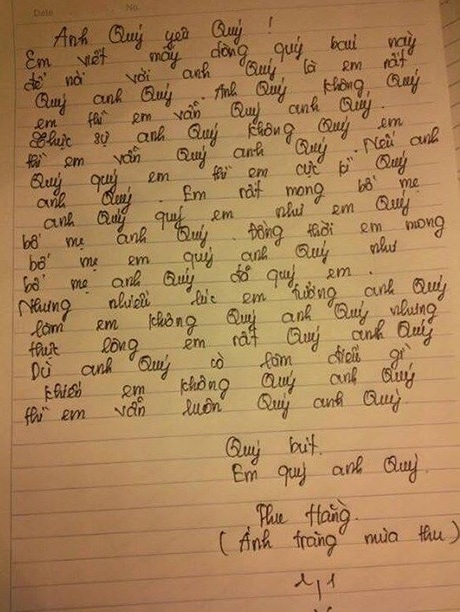 Date No.
Anh Quý yêu Quý !
Em viết mấy dòng quý bau này
để nói với anh Quý là em rất
Quý anh Quý. Anh Quý không Quý
em thì em vẫn Quý anh Quý.
Thực sự anh Quý không Quý em
thì em vẫn Quý anh Quý. Nếu anh
Quý quý em thì em cực kì Quý
anh Quý. Em rất mong bố mẹ
anh Quý quý em như em Quý
bố mẹ anh Quý. Đồng thời em mong
bố mẹ em quý anh Quý như
bố mẹ anh Quý đã quý em.
Nhưng nhiều lúc em tưởng anh Quý
làm em không Quý anh Quý nhưng
thực lòng em rất Quý anh Quý
Dù anh Quý có làm điều gì
khiến em không Quý anh Quý
thì em vẫn luôn Quý anh Quý.
Quý bút.
Em quý anh Quý.
Thu Hằng.
(Ánh trăng mùa thu)